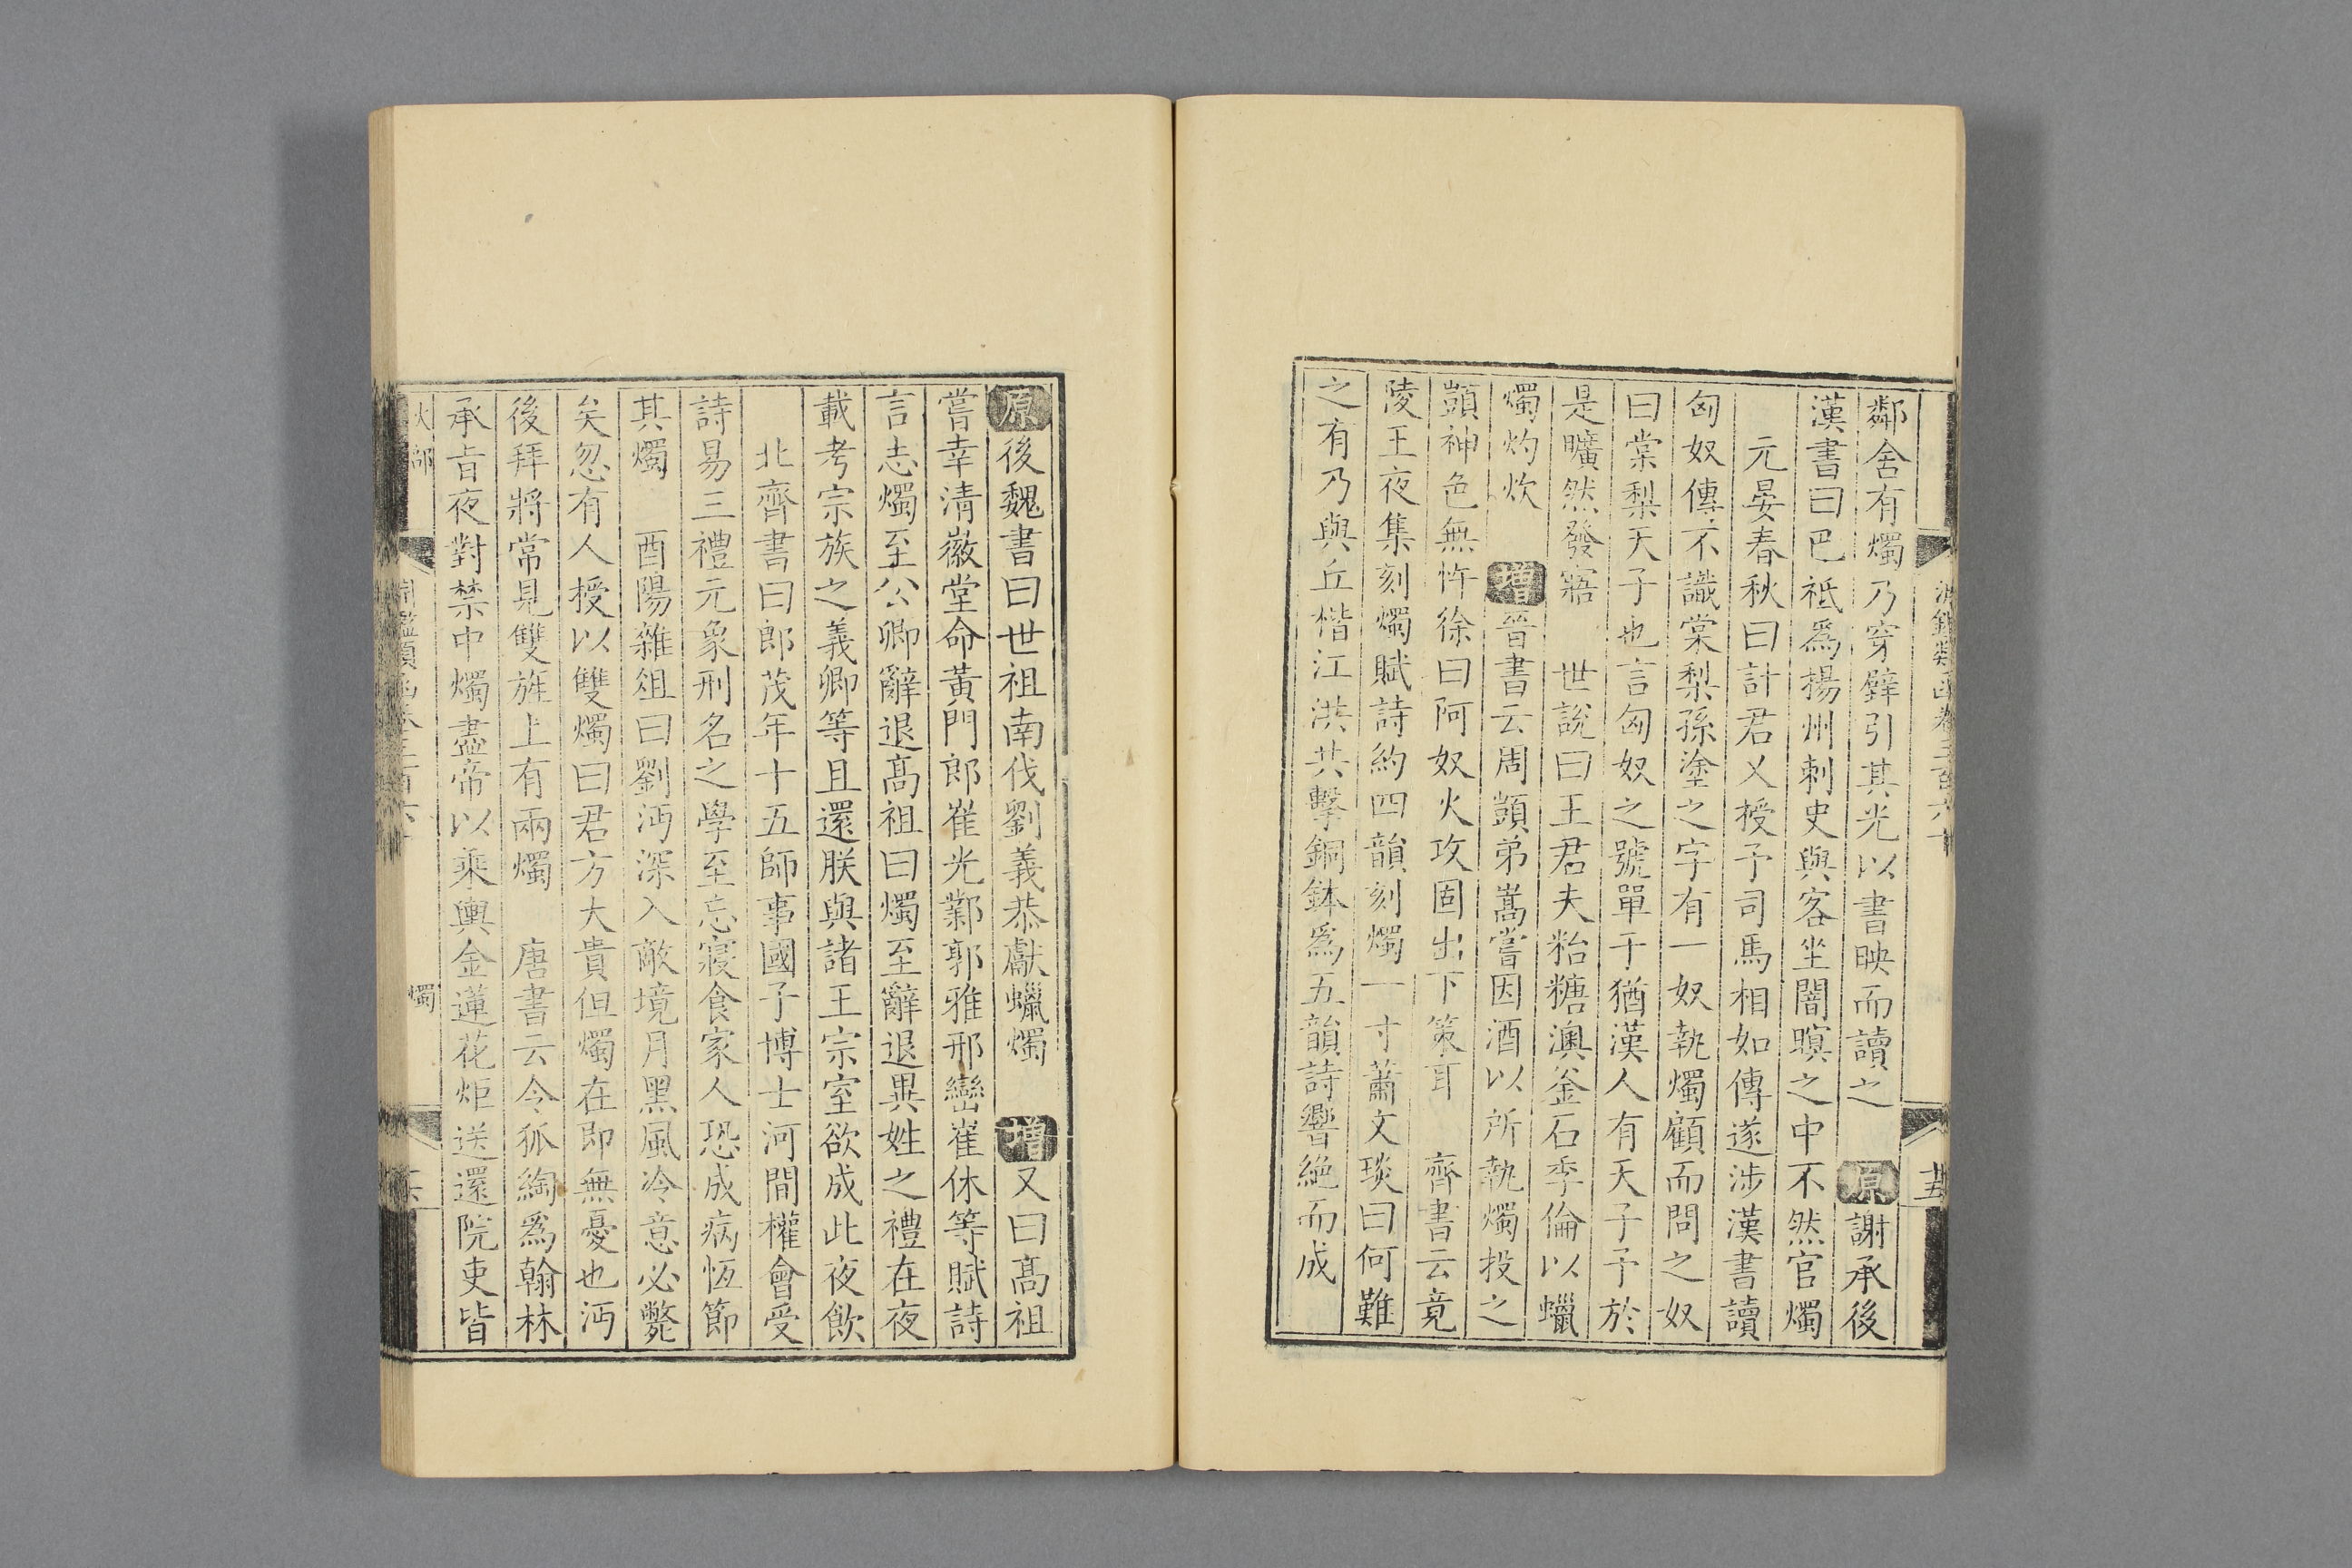 淵鑑類函卷三百六十
廿五
鄰舍有燭乃穿壁引其光以書映而讀之 原謝承後
漢書曰巴祗爲揚州刺史與客坐闇暝之中不然官燭
元晏春秋曰計君乂授予司馬相如傳遂涉漢書讀
匈奴傳不識棠梨孫塗之字有一奴執燭顧而問之奴
曰棠梨天子也言匈奴之號單于猶漢人有天子予於
是曠然發寤 世說曰王君夫粘糖澳釜石季倫以蠟
燭灼炊 增晉書云周顗弟嵩嘗因酒以所執燭投之
顗神色無忤徐曰阿奴火攻固出下策耳 齊書云竟
陵王夜集刻燭賦詩約四韻刻燭一寸蕭文琰曰何難
之有乃與丘楷江洪共擊銅鉢爲五韻詩響絶而成
原後魏書曰世祖南伐劉義恭獻蠟燭 增又曰髙祖
嘗幸清徽堂命黃門郎崔光鄴郭雅邢巒崔休等賦詩
言志燭至公卿辭退髙祖曰燭至辭退異姓之禮在夜
載考宗族之義卿等且還朕與諸王宗室欲成此夜飲
北齊書曰郎茂年十五師事國子博士河間權會受
詩易三禮元象刑名之學至忘寢食家人恐成病恆節
其燭 酉陽雜俎曰劉沔深入敵境月黑風冷意必斃
矣忽有人授以雙燭曰君方大貴但燭在即無憂也沔
後拜將常見雙旌上有兩燭 唐書云令狐綯爲翰林
承旨夜對禁中燭盡帝以乘輿金蓮花炬送還院吏皆
火部 燭